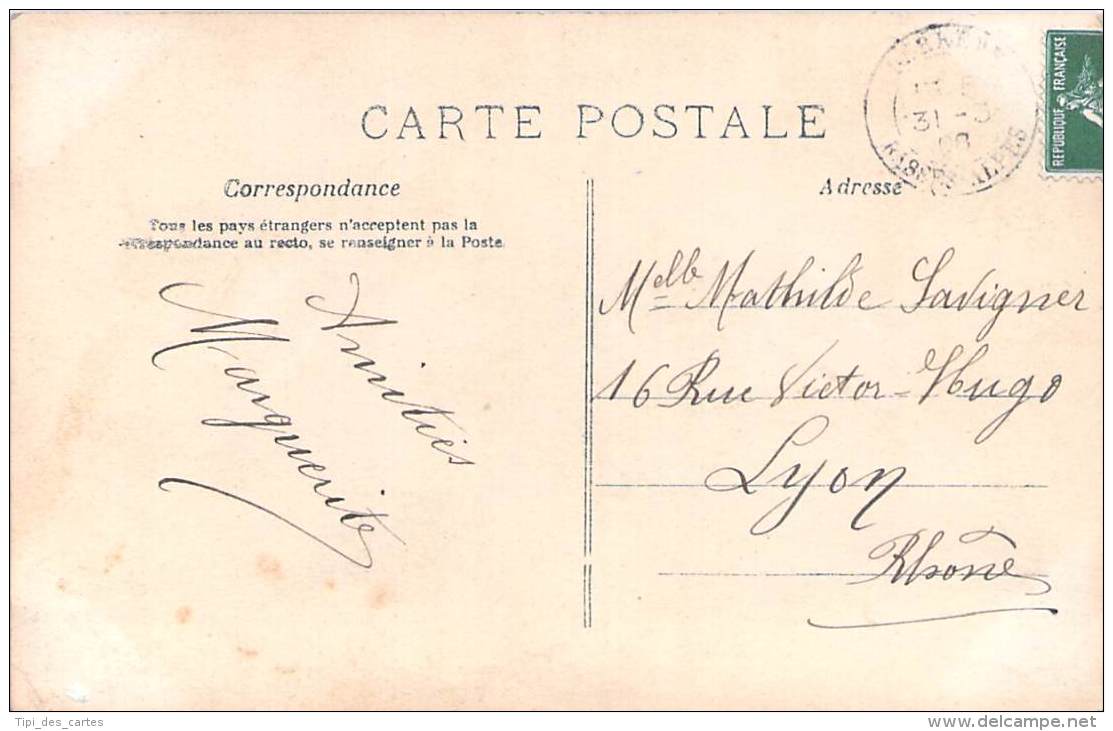 CARTE POSTALE
Correspondance
Tous les pays étrangers n'acceptent pas la
correspondance au recto, se renseigner à la Poste.
Amitiés
Marguerite
Adresse
Melle Mathilde Savigner
16 Rue Victor-Hugo
Lyon
Rhône
31 -3
08
BASSES-ALPES
REPUBLIQUE FRANÇAISE
Tipi_des_cartes
www.delcampe.net